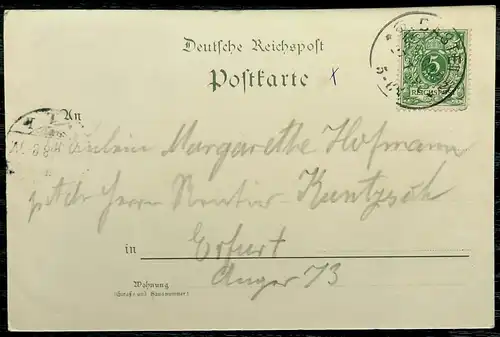 Deutsche Reichspost
Postkarte
x
BASTEI
5
REICHSPOST
An
Fräulein Margarethe Hofmann
Herrn Rentier Kuntzsch
in Erfurt
Anger 73
Wohnung
(Straße und Hausnummer)